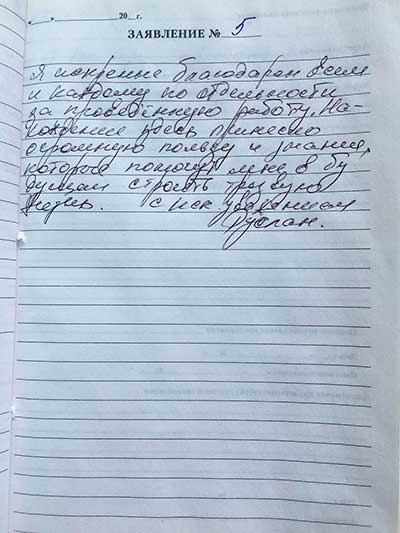 « » 20 г.
ЗАЯВЛЕНИЕ № 5
Я искренне благодарен всем
и каждому по отдельности
за проведённую работу. На-
хождение здесь принесло
огромную пользу и знания,
которые помогут мне в бу
дущем строить трезвую
жизнь. С иск. уважением
Руслан.